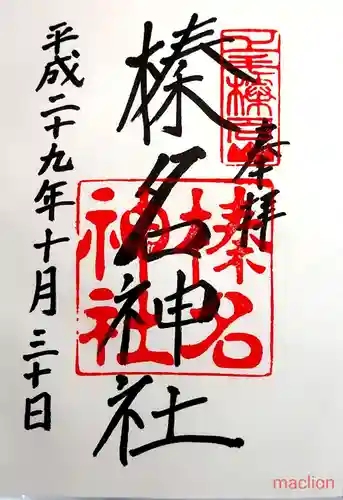 奉拝
榛名神社
平成二十九年十月三十日
榛名
神社
maclion